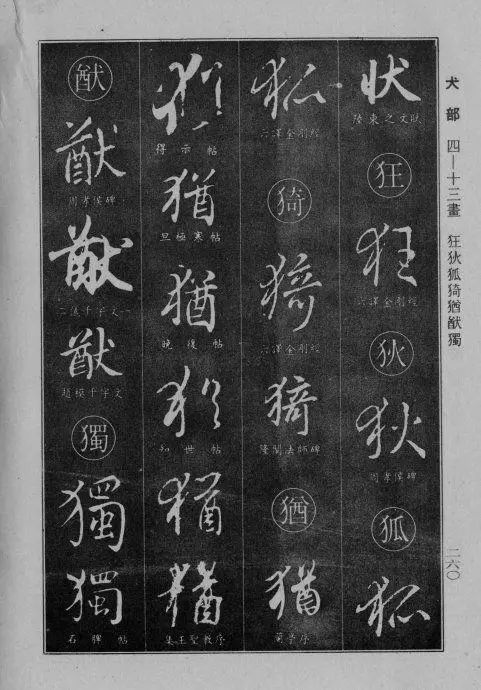 犬部 四—十三畫 狂狄狐猗猶猷獨
二六〇
狀
陸柬之文賦
狂
狂
六譯金剛經
狄
狄
周孝侯碑
狐
狐
狐
六譯金剛經
猗
猗
六譯金剛經
猗
隆闡法師碑
猶
猶
蘭亭序
猶
得示帖
猶
旦極寒帖
猶
晚復帖
猶
知世帖
猶
猶
集王聖教序
猷
猷
周孝侯碑
猷
千字文
猷
趙模千字文
獨
獨
獨
石脾帖